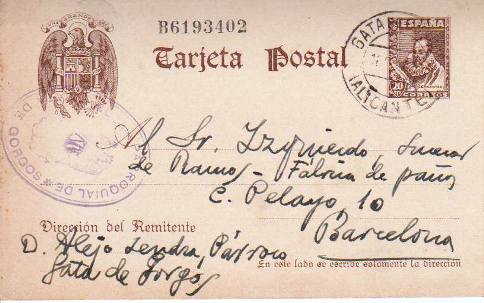 B6193402
Tarjeta Postal
ESPAÑA
20
CORREOS
GATA
(ALICANTE)
PARROQUIAL DE
Al Sr. Izquierdo
de Ramos - Fábrica de paños
C. Pelayo, 10
Barcelona
Dirección del Remitente
D. Alejo Lendra, Párroco
Gata de Gorgos
En este lado se escribe solamente la dirección